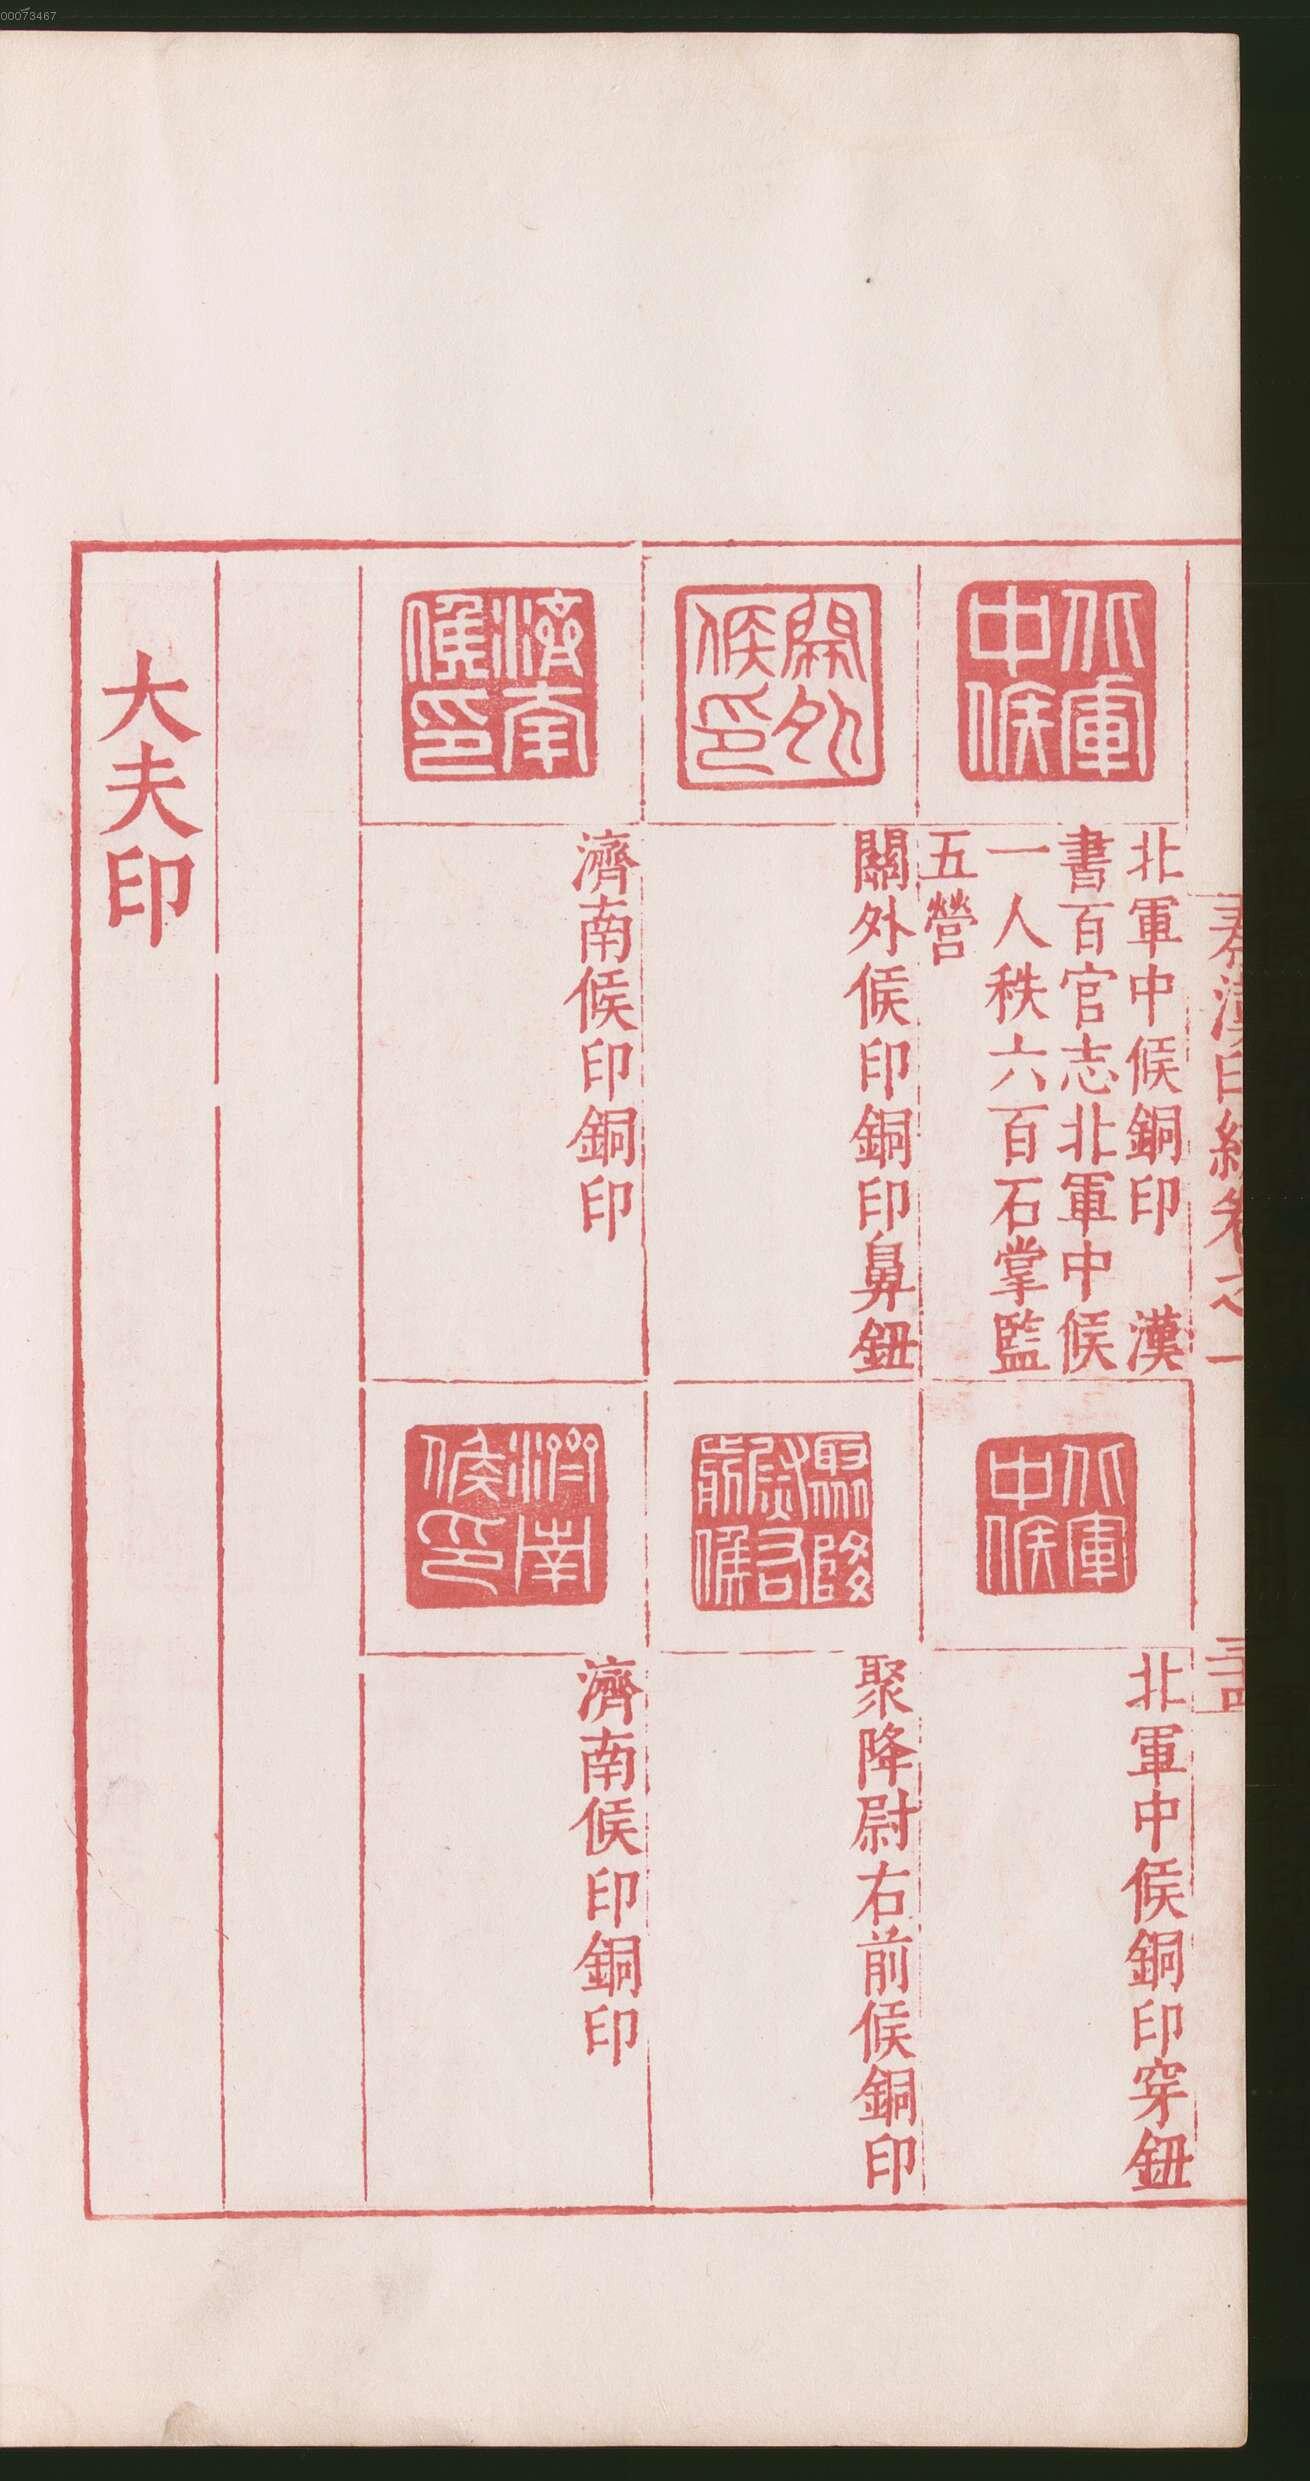 00073467
北軍中候
北軍中候銅印　漢
書百官志北軍中候
一人秩六百石掌監
五營
北軍中候
北軍中候銅印穿鈕
關外候印
關外候印銅印鼻鈕
聚降尉右前候
聚降尉右前候銅印
濟南候印
濟南候印銅印
濟南候印
濟南候印銅印
大夫印